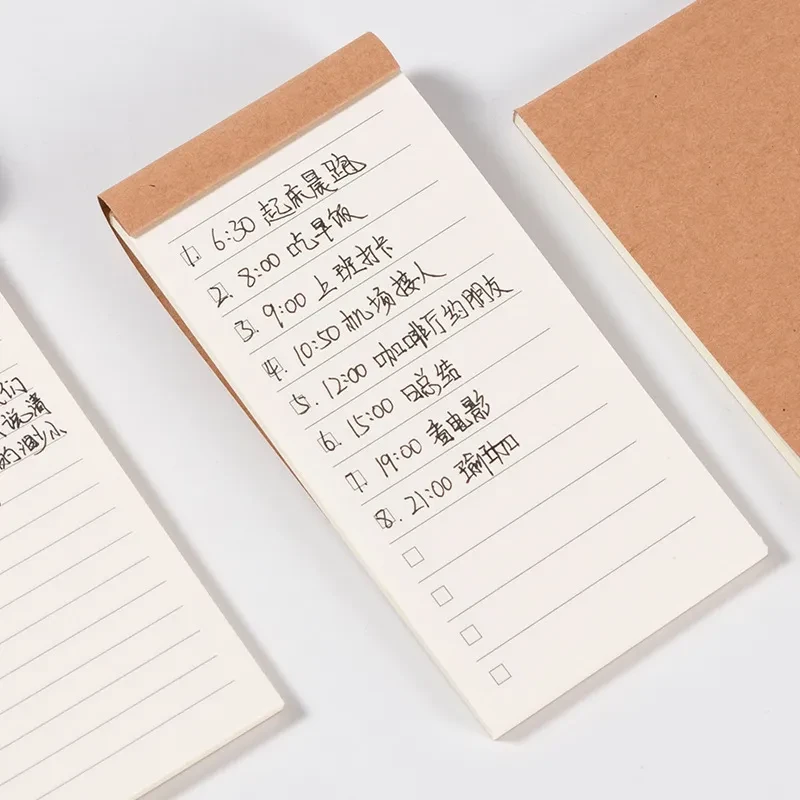 们
说清
的
1. 6:30 起床晨跑
2. 8:00 吃早饭
3. 9:00 上班打卡
4. 10:50 机场接人
5. 12:00 咖啡厅约朋友
6. 15:00 日总结
7. 19:00 看电影
8. 21:00 瑜伽